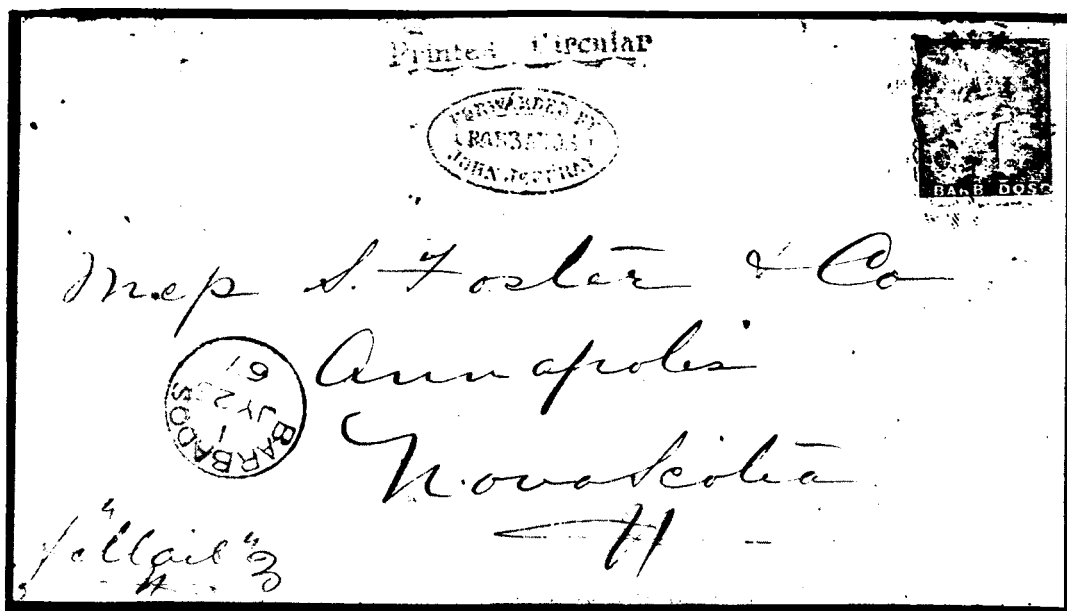 Printed Circular
FORWARDED BY
BARBADOS
JOHN JEFFRAY
BARBADOS
Mess S. Foster & Co
Annapolis
Nova Scotia
BARBADOS
1
JY 2
"Mail"